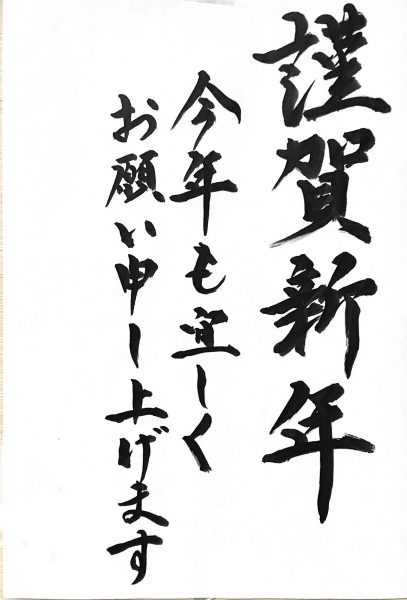 謹賀新年
今年も宜しく
お願い申し上げます